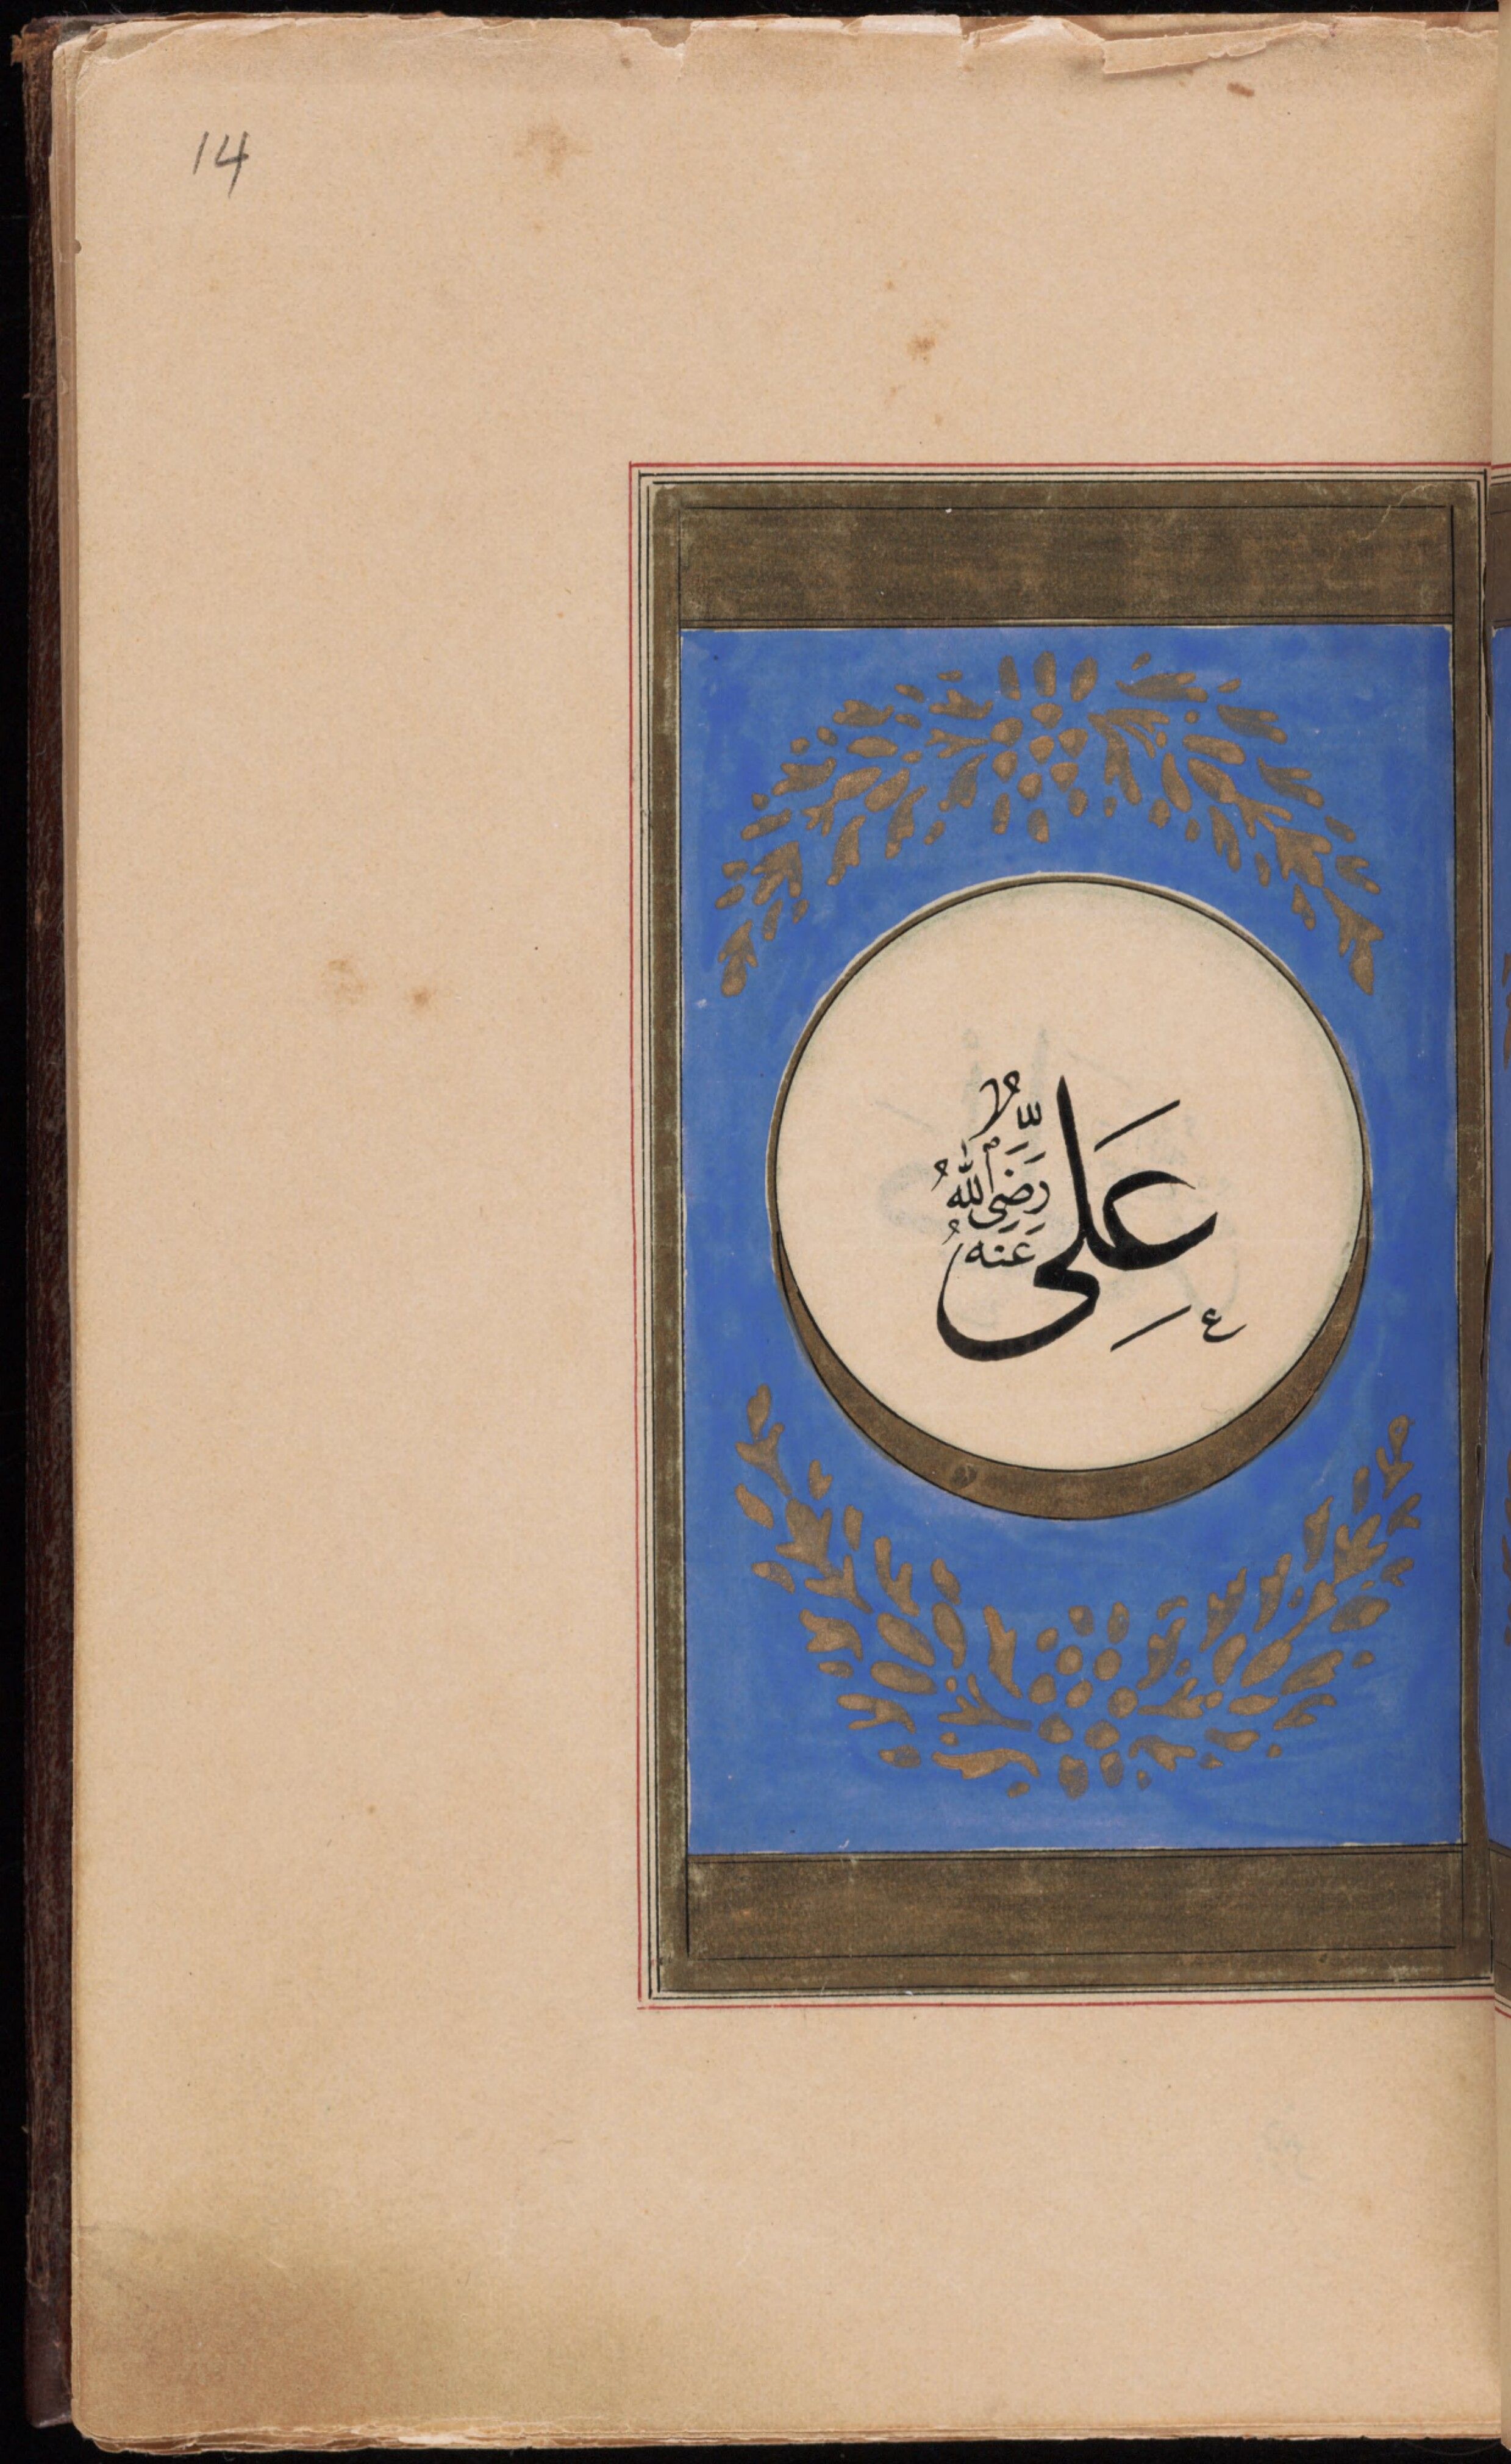 14
عَلِيٌّ
رَضِيَ اللّٰهُ
عَنْهُ